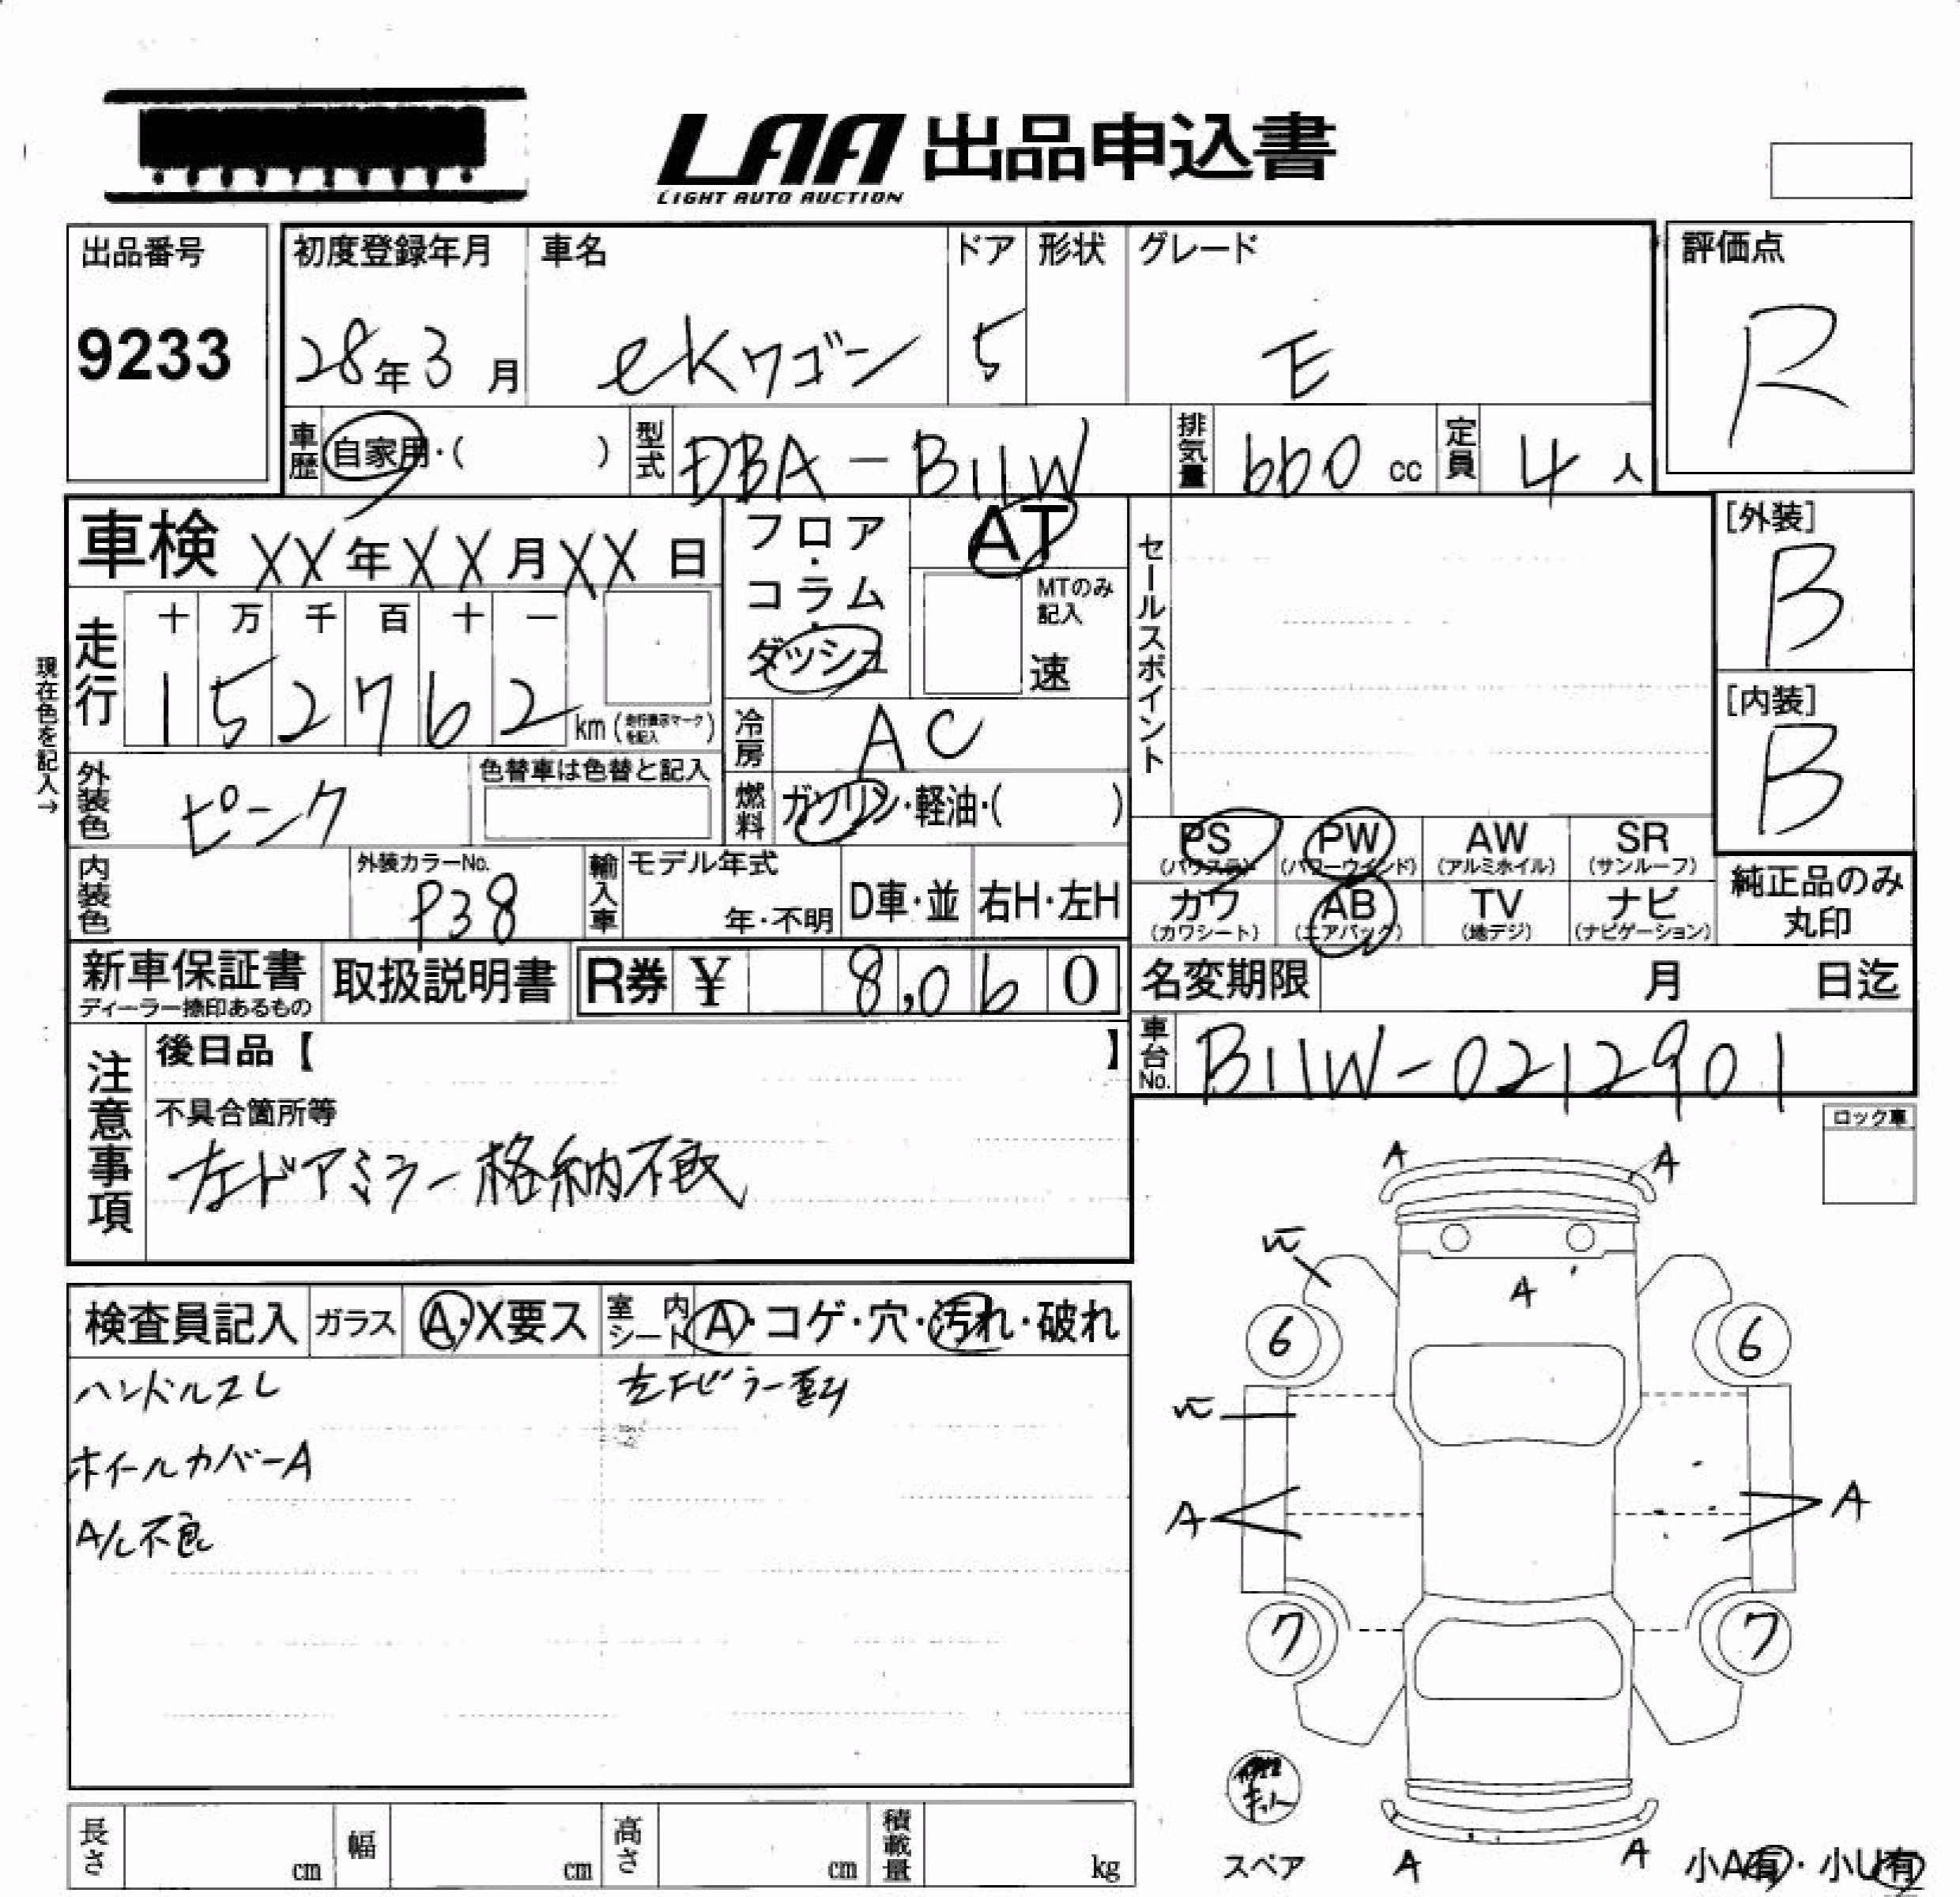 LAA 出品申込書
LIGHT AUTO AUCTION
出品番号
9233
初度登録年月
28年3月
車名
ekワゴン
ドア
5
形状
グレード
E
評価点
R
車歴
自家用・( )
型式
DBA-B11W
排気量
660 cc
定員
4人
車検 XX年XX月XX日
フロア・コラム・ダッシュ
AT
MTのみ記入
速
セールスポイント
[外装]
B
[内装]
B
現在色を記入→
走行
十 万 千 百 十 一
1 5 2 7 6 2 km (走行表示マークを記入)
冷房
AC
燃料
ガソリン・軽油・( )
外装色
ピンク
色替車は色替と記入
内装色
外装カラーNo.
P38
輸入車
モデル年式
年・不明
D車・並
右H・左H
PS (パワステ)
PW (パワーウインド)
AW (アルミホイル)
SR (サンルーフ)
カワ (カワシート)
AB (エアバック)
TV (地デジ)
ナビ (ナビゲーション)
純正品のみ丸印
新車保証書
ディーラー捺印あるもの
取扱説明書
R券 ¥ 8,060
名変期限 月 日迄
車台No.
B11W-0212901
注意事項
後日品【 】
不具合箇所等
左ドアミラー格納不良
ロック車
検査員記入
ガラス
A・X要ス
室内シート
A・コゲ・穴・汚れ・破れ
ハンドルスレ
ホイールカバーA
A/C不良
A A
A
6 6
A A
7 7
スペア
A A
小A有・小U有
長さ cm
幅 cm
高さ cm
積載量 kg